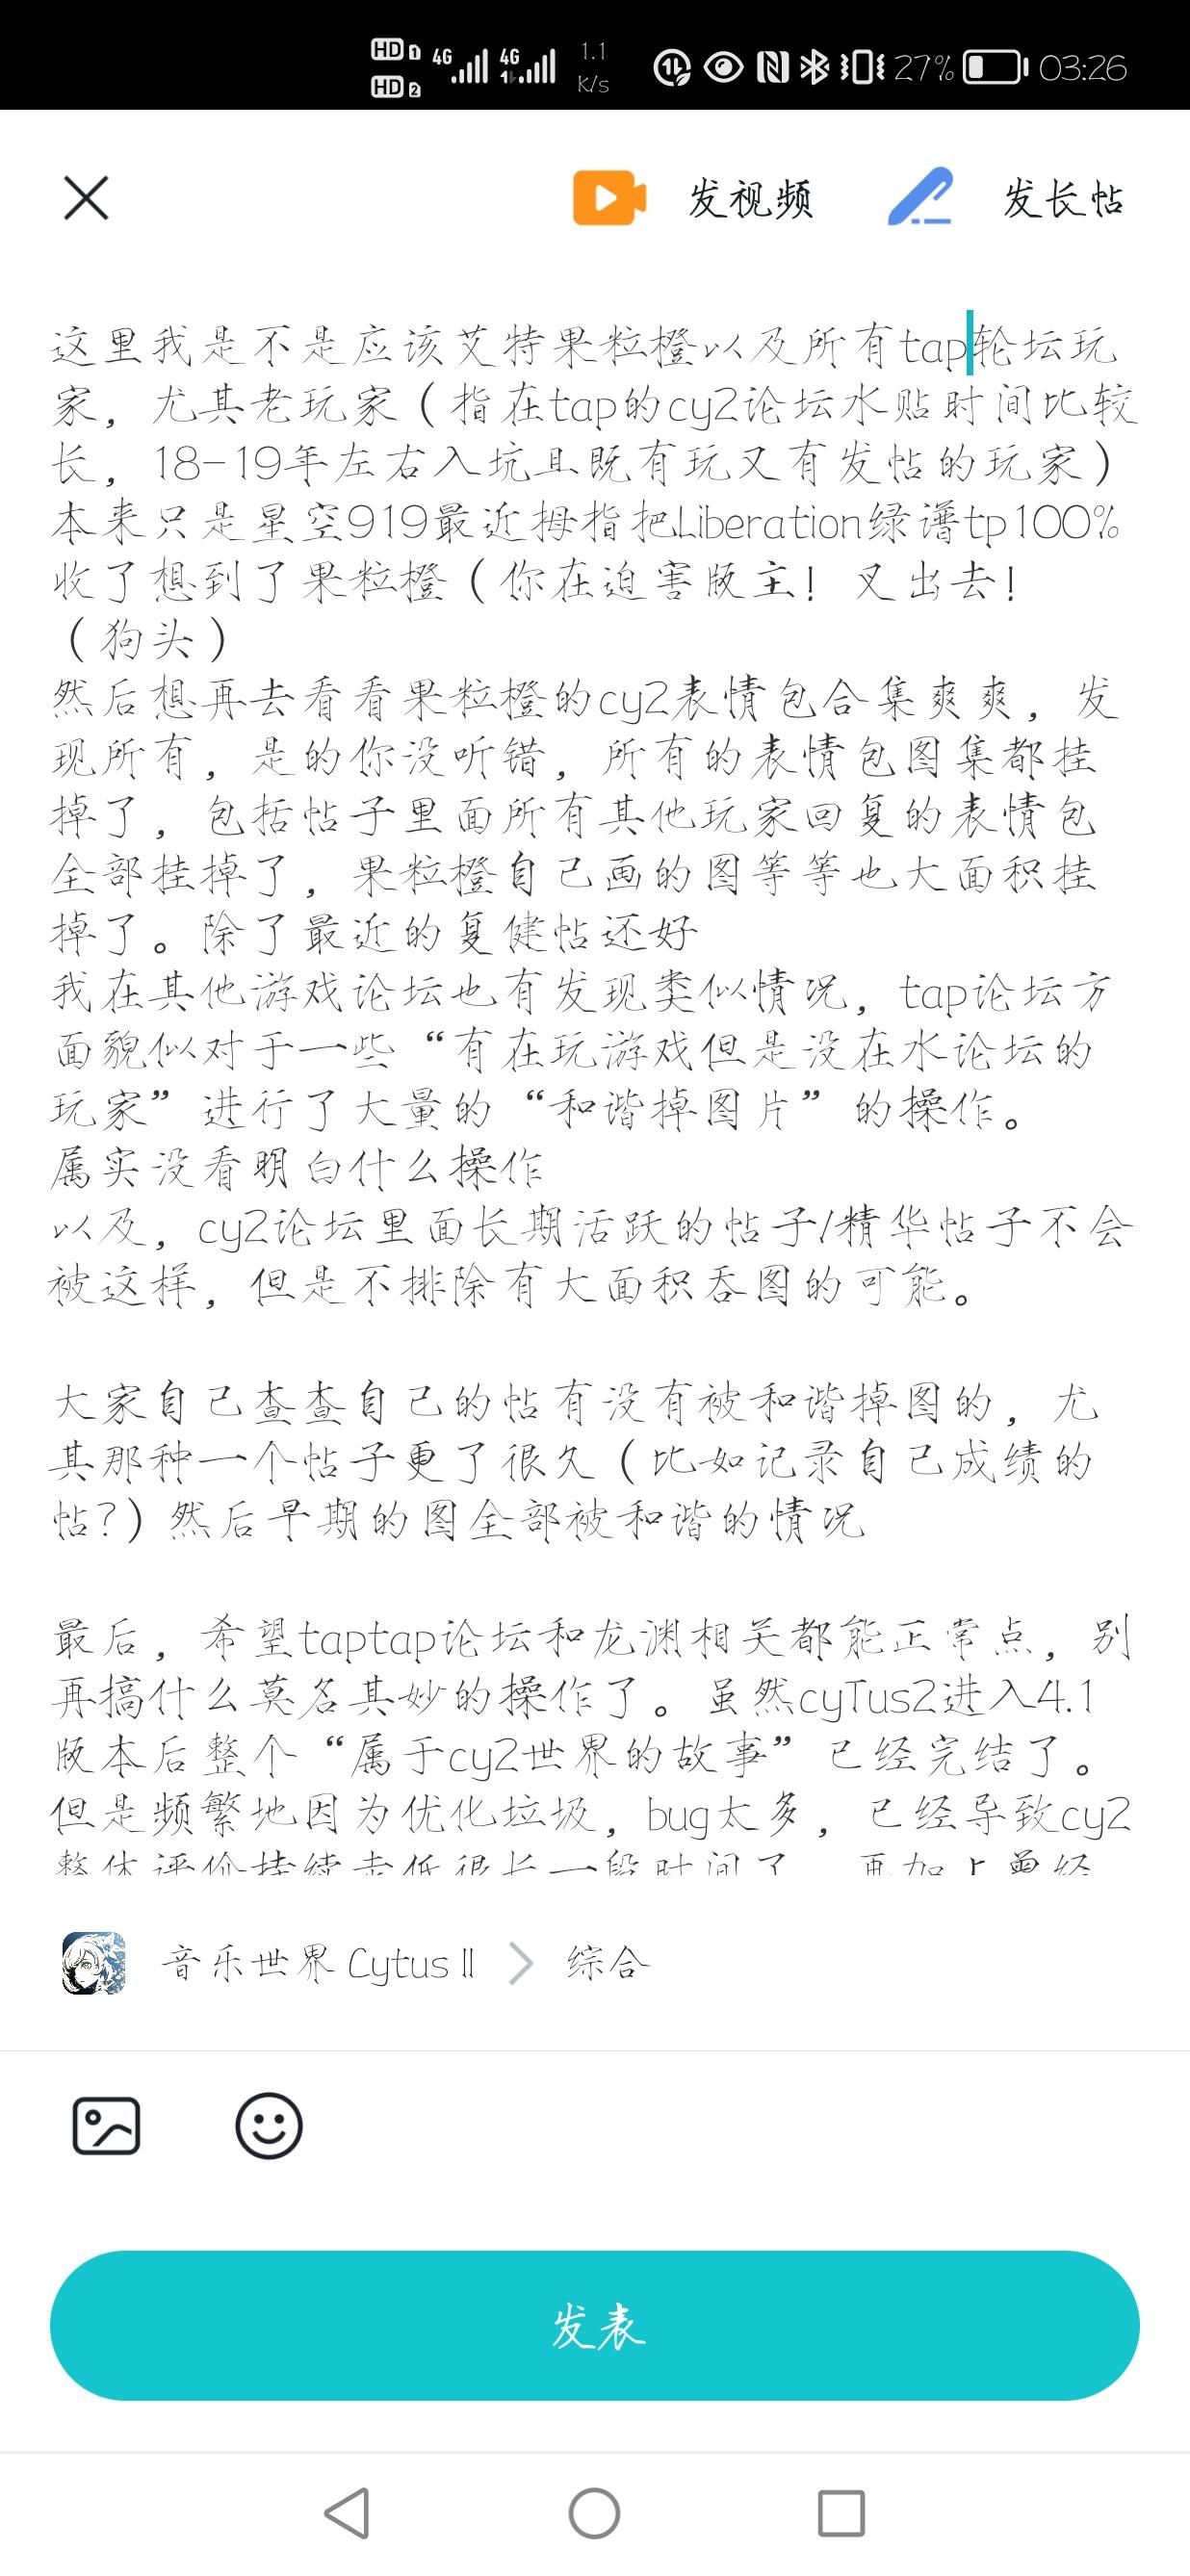 HD 1 4G 4G 1.1 27% 03:26
HD 2 K/s
发视频 发长帖
这里我是不是应该艾特果粒橙以及所有tap轮坛玩
家，尤其老玩家（指在tap的cy2论坛水贴时间比较
长，18-19年左右入坑且既有玩又有发帖的玩家）
本来只是星空919最近拇指把Liberation绿谱tp100%
收了想到了果粒橙（你在迫害版主！叉出去！
（狗头）
然后想再去看看果粒橙的cy2表情包合集爽爽，发
现所有，是的你没听错，所有的表情包图集都挂
掉了，包括帖子里面所有其他玩家回复的表情包
全部挂掉了，果粒橙自己画的图等等也大面积挂
掉了。除了最近的复健帖还好
我在其他游戏论坛也有发现类似情况，tap论坛方
面貌似对于一些“有在玩游戏但是没在水论坛的
玩家”进行了大量的“和谐掉图片”的操作。
属实没看明白什么操作
以及，cy2论坛里面长期活跃的帖子/精华帖子不会
被这样，但是不排除有大面积吞图的可能。
大家自己查查自己的帖有没有被和谐掉图的，尤
其那种一个帖子更了很久（比如记录自己成绩的
帖?）然后早期的图全部被和谐的情况
最后，希望taptap论坛和龙渊相关都能正常点，别
再搞什么莫名其妙的操作了。虽然cyTus2进入4.1
版本后整个“属于cy2世界的故事”已经完结了。
但是频繁地因为优化垃圾，bug太多，已经导致cy2
整体评价持续走低很长一段时间了，再加上曾经
音乐世界 Cytus II 综合
发表